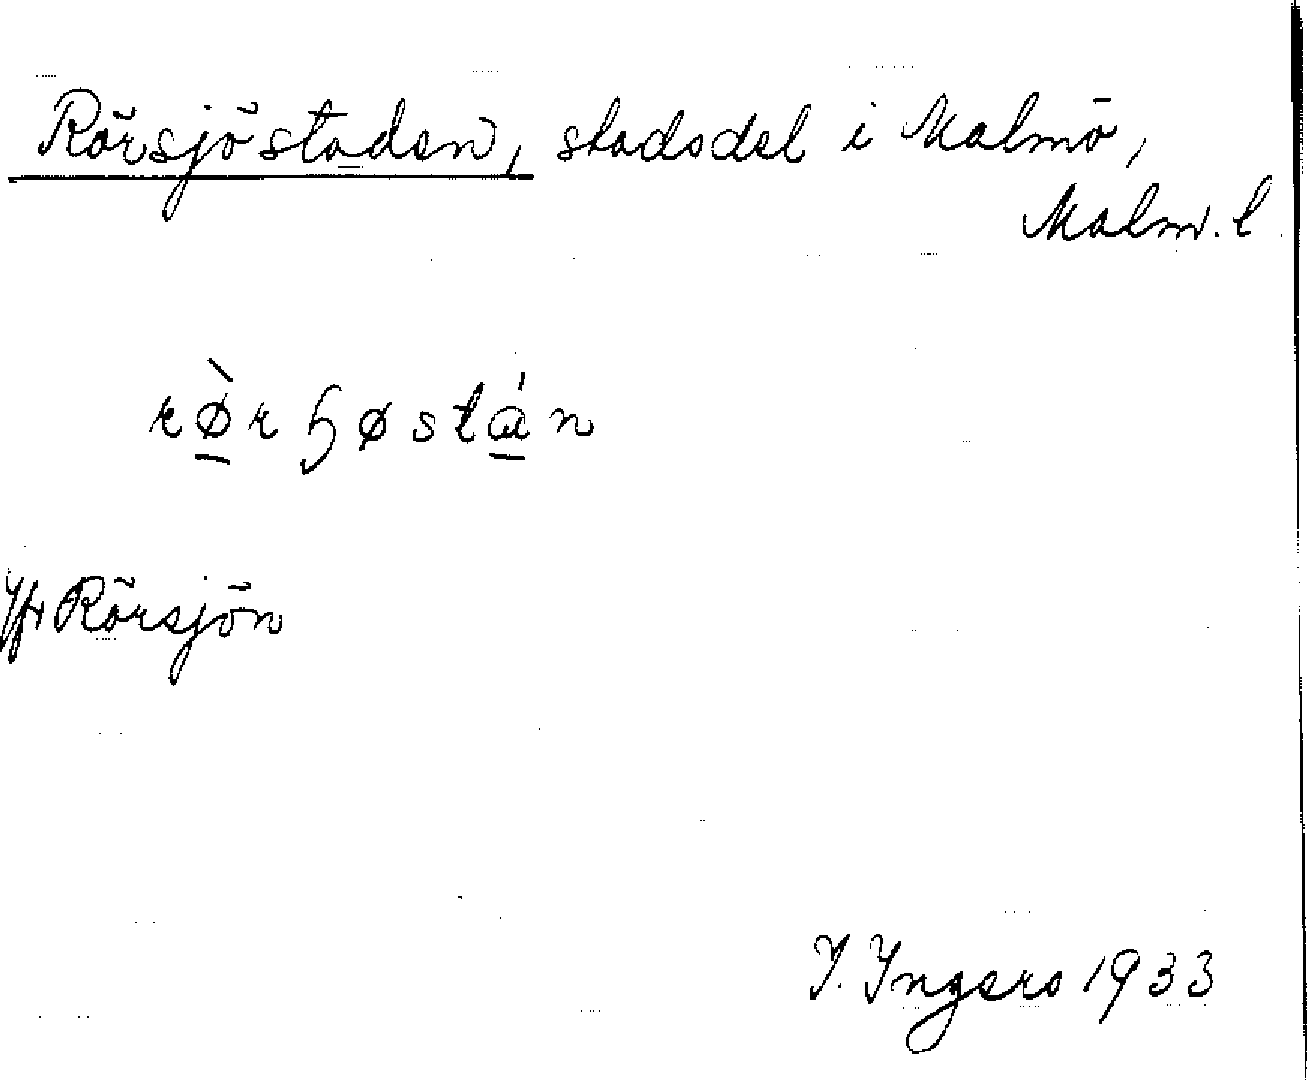 Rörsjöstaden, stadsdel i Malmö,
Malm. l.
rø̱̀rɧøstá̱n
Jfr Rörsjön
I. Ingers 1933